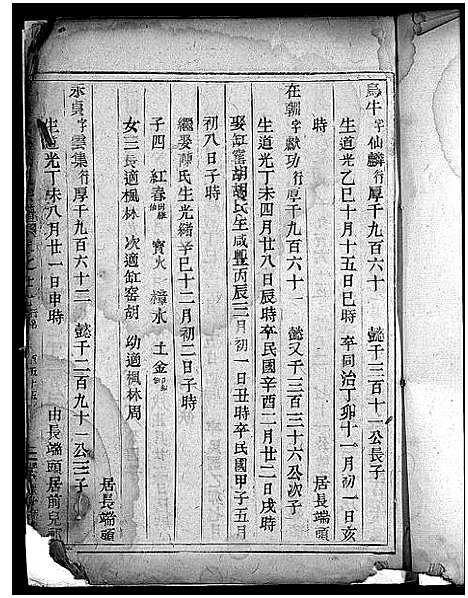 烏牛 字仙麟行厚千九百六十 懿千三百十一公長子
生道光乙巳十月十五日巳時 卒同治丁卯十一月初一日亥
時 居長端頭
在朝 字獻功行厚千九百六十一 懿又千三百三十六公次子
生道光丁未四月廿八日辰時卒民國辛酉二月廿二日戌時
娶缸窰胡胡氏生咸豐丙辰三月初一日丑時卒民國甲子五月
初八日子時
繼娶 氏生光緒辛巳十二月初二日子時
子四 紅春 寶火 樟水 土金
女三長適楓林 次適缸窑胡 幼適楓林周
居長端頭
永貞 字雲集行厚千九百六十三 懿千二百九十一公三子
生道光丁未八月廿一日申時 由長端頭居前兒